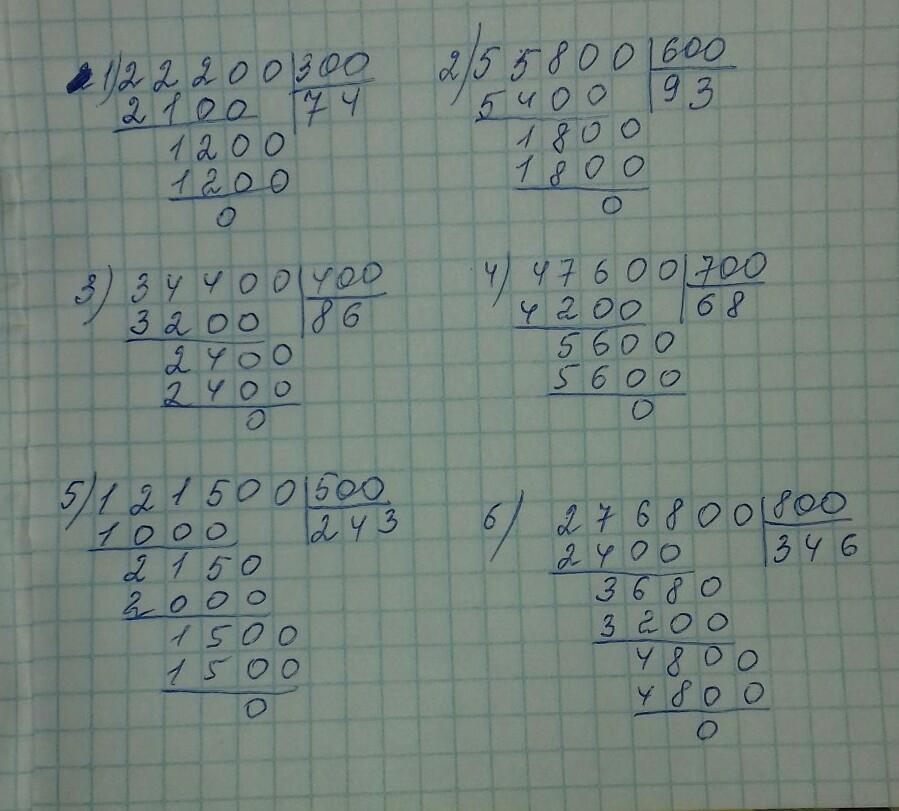 1) 22200 300
2100 74
1200
1200
0
2) 55800 600
5400 93
1800
1800
0
3) 34400 400
3200 86
2400
2400
0
4) 47600 700
4200 68
5600
5600
0
5) 121500 500
1000 243
2150
2000
1500
1500
0
6) 276800 800
2400 346
3680
3200
4800
4800
0